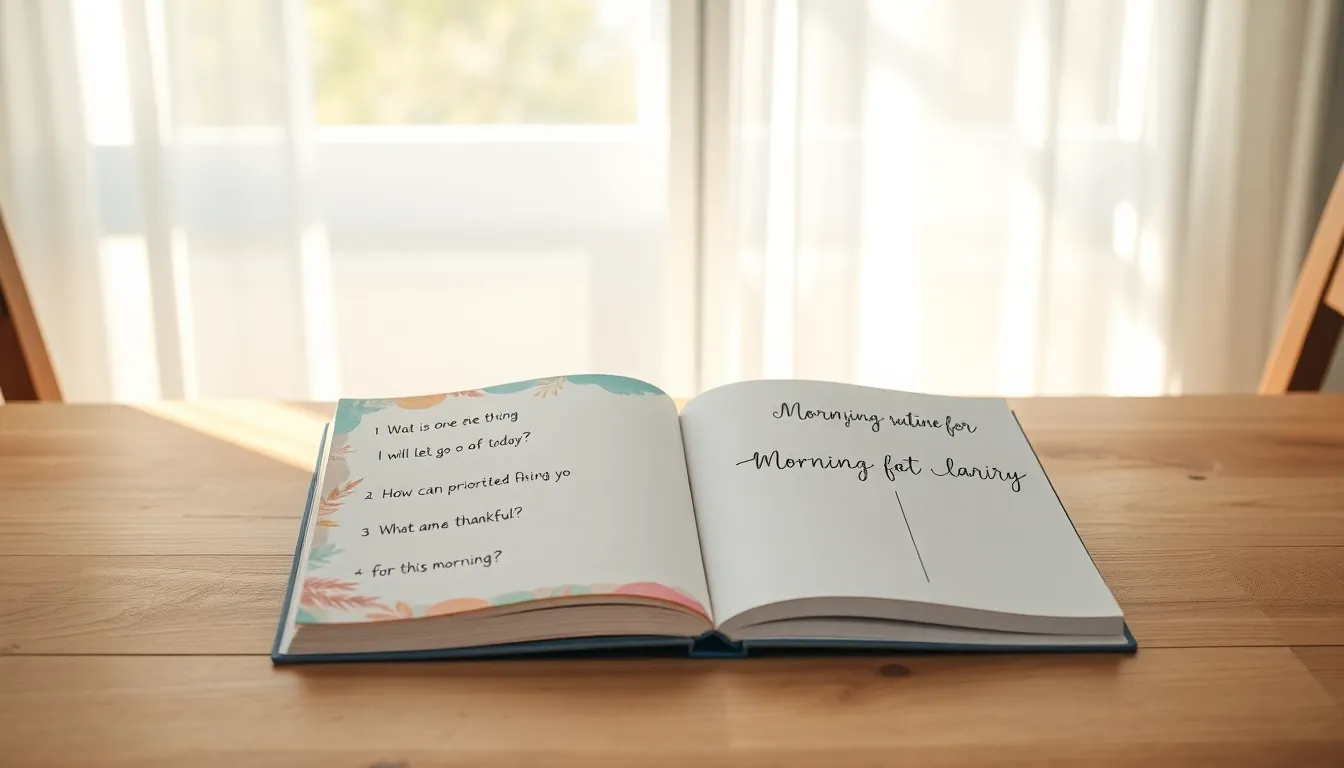 1 Wat is one ene thing
I will let go o of today?
2 How can priortled Fising yo
3 What ame thankful?
4 for this morning?
Mornɲing sutine for
Morning fat lariry